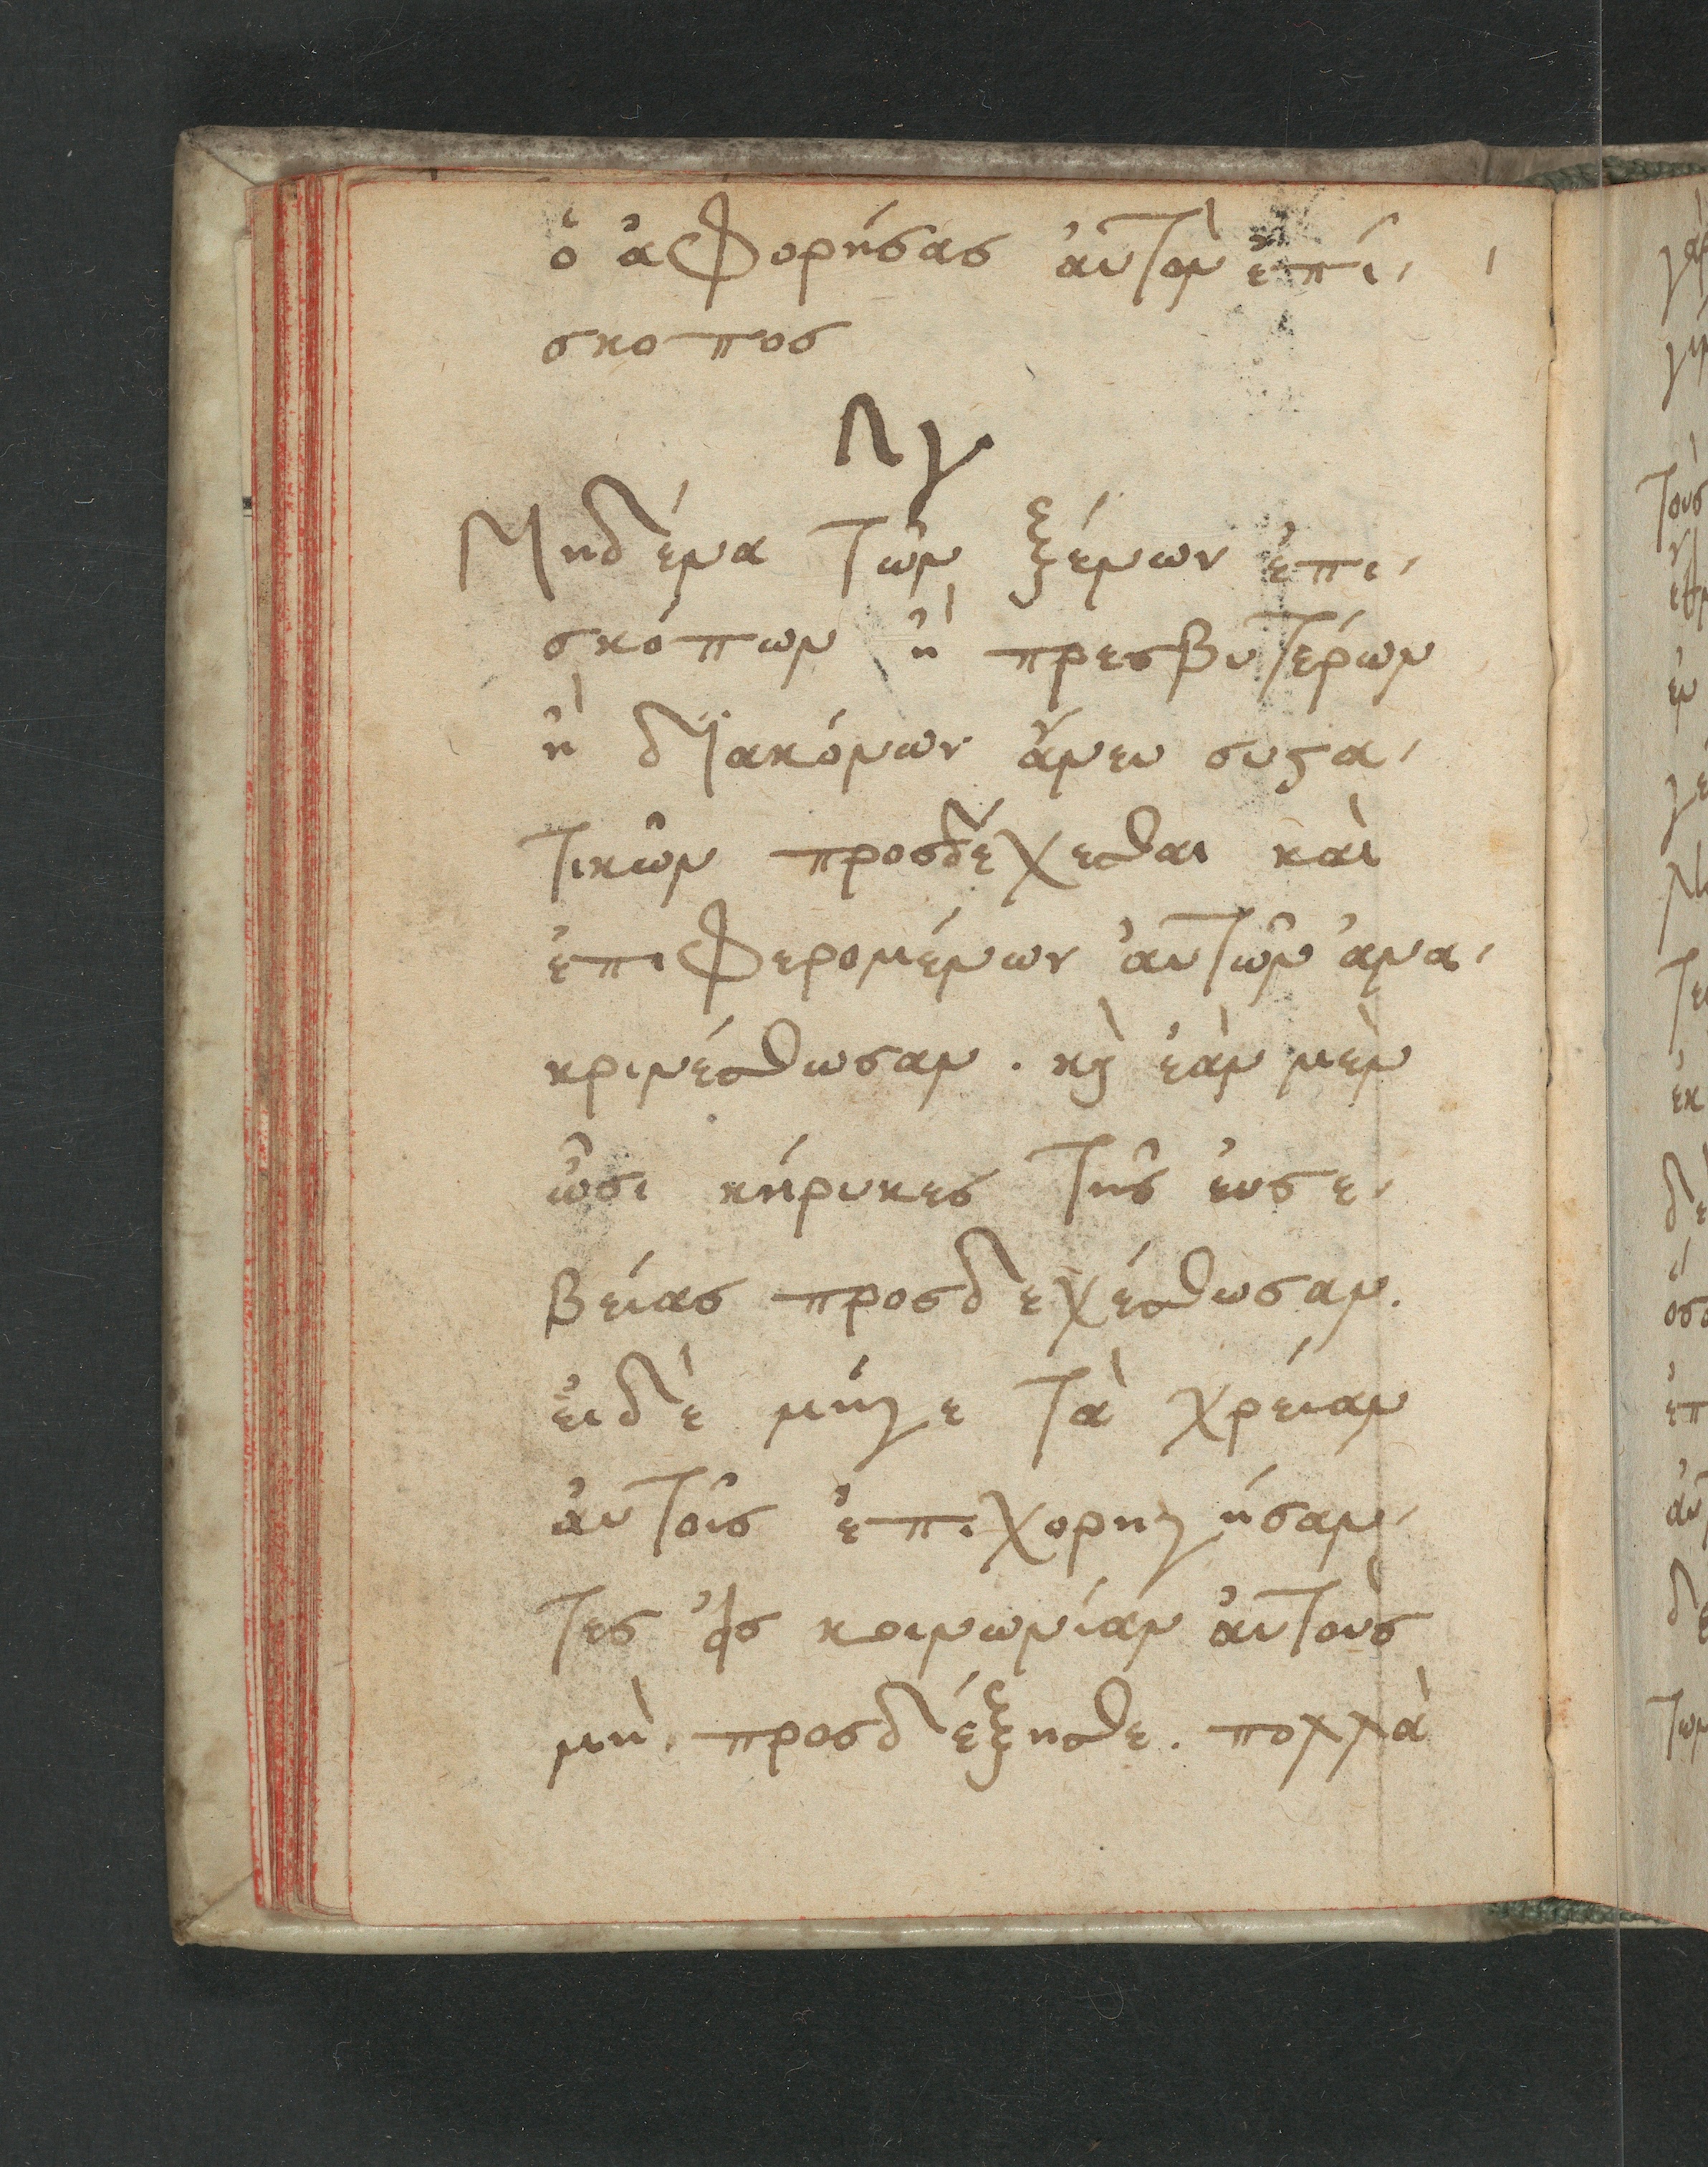 ὁ ἀφορήσας ἀυτὸν ἐπί-
σκοπος
λγ
Μηδένα τῶν ξένων ἐπι-
σκόπων ἢ πρεσβυτέρων
ἢ διακόνων ἄνευ συϛα-
τικῶν προσδέχεσθαι καὶ
ἐπιφερομένων ἀυτῶν ἀνα-
κρινέσθωσαν. κὶ ἐὰν μὲν
ὦσι κήρυκες τῆς ἐυσε-
βείας προσδεχέσθωσαν.
ἐιδὲ μήγε τὰ χρείαν
ἀυτοῖς ἐπιχορηγήσαν-
τες ἐις κοινωνίαν ἀυτοὺς
μὴ προσδέξησθε. πολλὰ